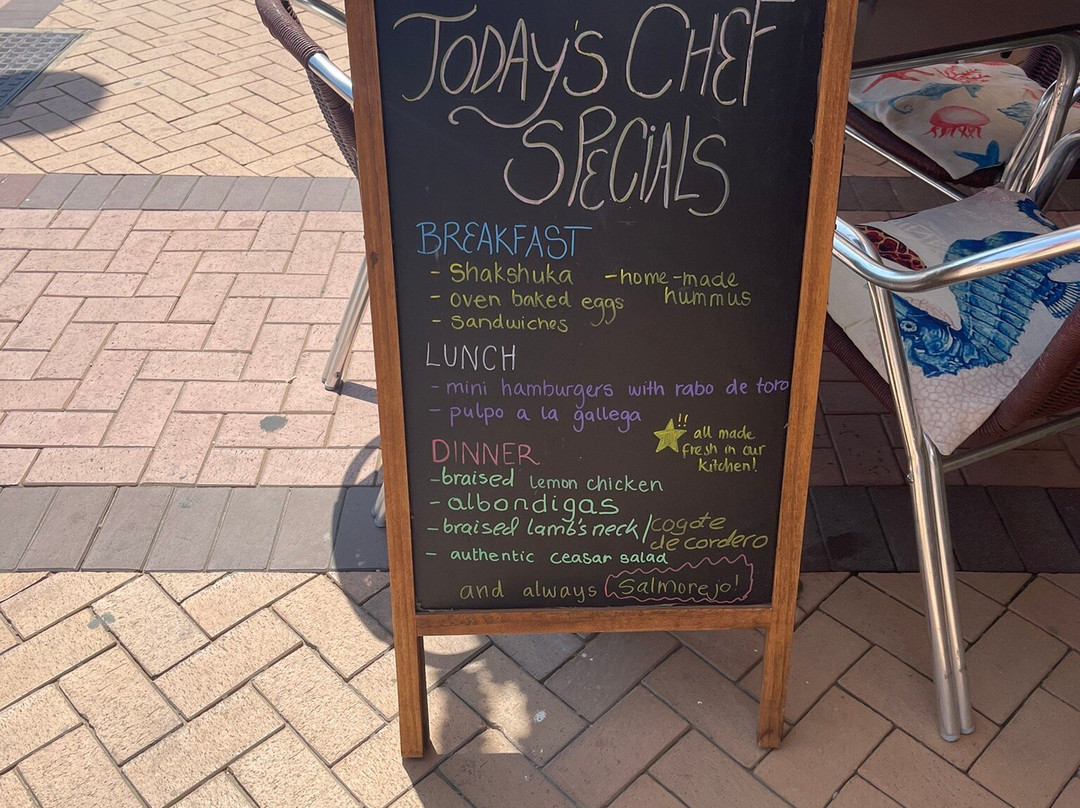 TODAY'S CHEF
SPECIALS
BREAKFAST
- Shakshuka - home-made
- oven baked eggs hummus
- Sandwiches
LUNCH
- mini hamburgers with rabo de toro
- pulpo a la gallega
!! all made
fresh in our
kitchen!
DINNER
- braised lemon chicken
- albondigas
- braised lamb's neck/cogote
de cordero
- authentic ceasar salad
and always Salmorejo!